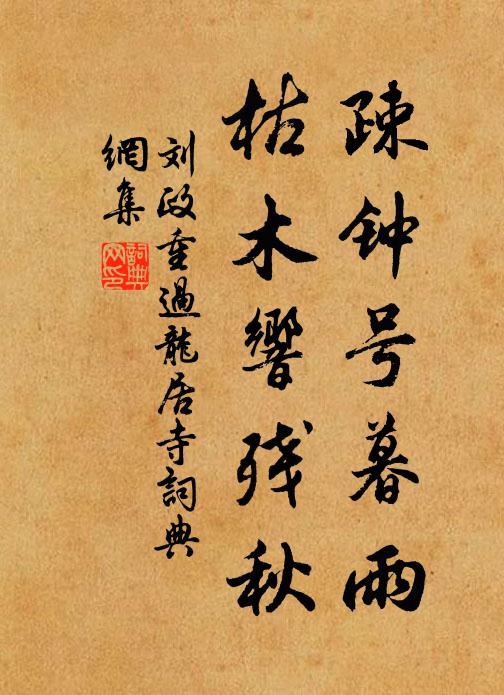 疎钟号暮雨
枯木響残秋
刘政重過龍居寺詞典
網集
詞典
网印